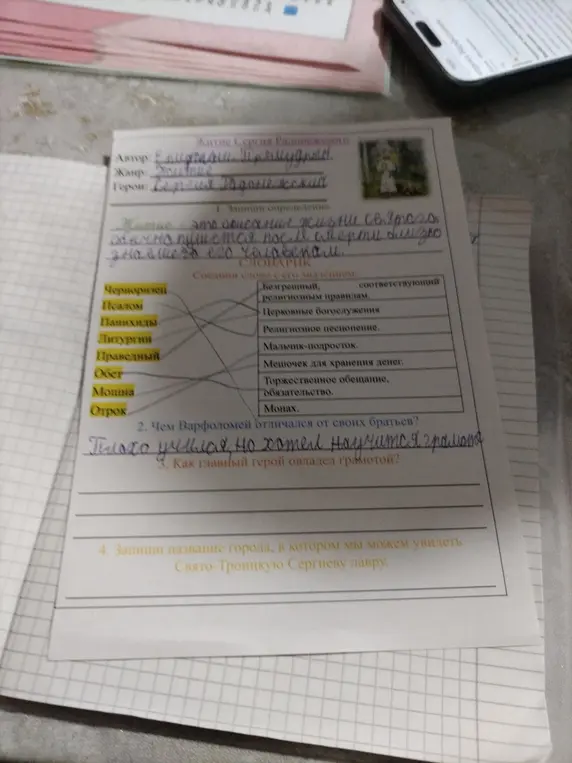 Житие Сергия Радонежского
Автор: Епифаний Премудрый
Жанр: Житие
Герои: Сергия Радонежский
1. Запиши определение
Житие - это описание жизни святого,
обычно пишется после смерти
знавшего его человеком.
СЛОВАРИК
Соедини слово с его значением.
Черноризец
Псалом
Панихиды
Литургии
Праведный
Обет
Мошна
Отрок
Безгрешный, соответствующий
религиозным правилам.
Церковные богослужения
Религиозное песнопение.
Мальчик-подросток.
Мешочек для хранения денег.
Торжественное обещание,
обязательство.
Монах.
2. Чем Варфоломей отличался от своих братьев?
Плохо учился, но хотел научится грамоте
3. Как главный герой овладел грамотой?
4. Запиши название города, в котором мы можем увидеть
Свято-Троицкую Сергиеву лавру.